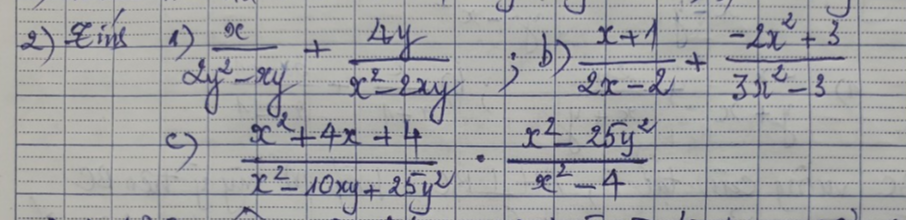 2) Tính 1) x/(2y² - xy) + 4y/(x² - 2xy) ; b) (x+1)/(2x-2) + (-2x²+3)/(3x²-3)
c) (x²+4x+4)/(x²-10xy+25y²) · (x²-25y²)/(x²-4)